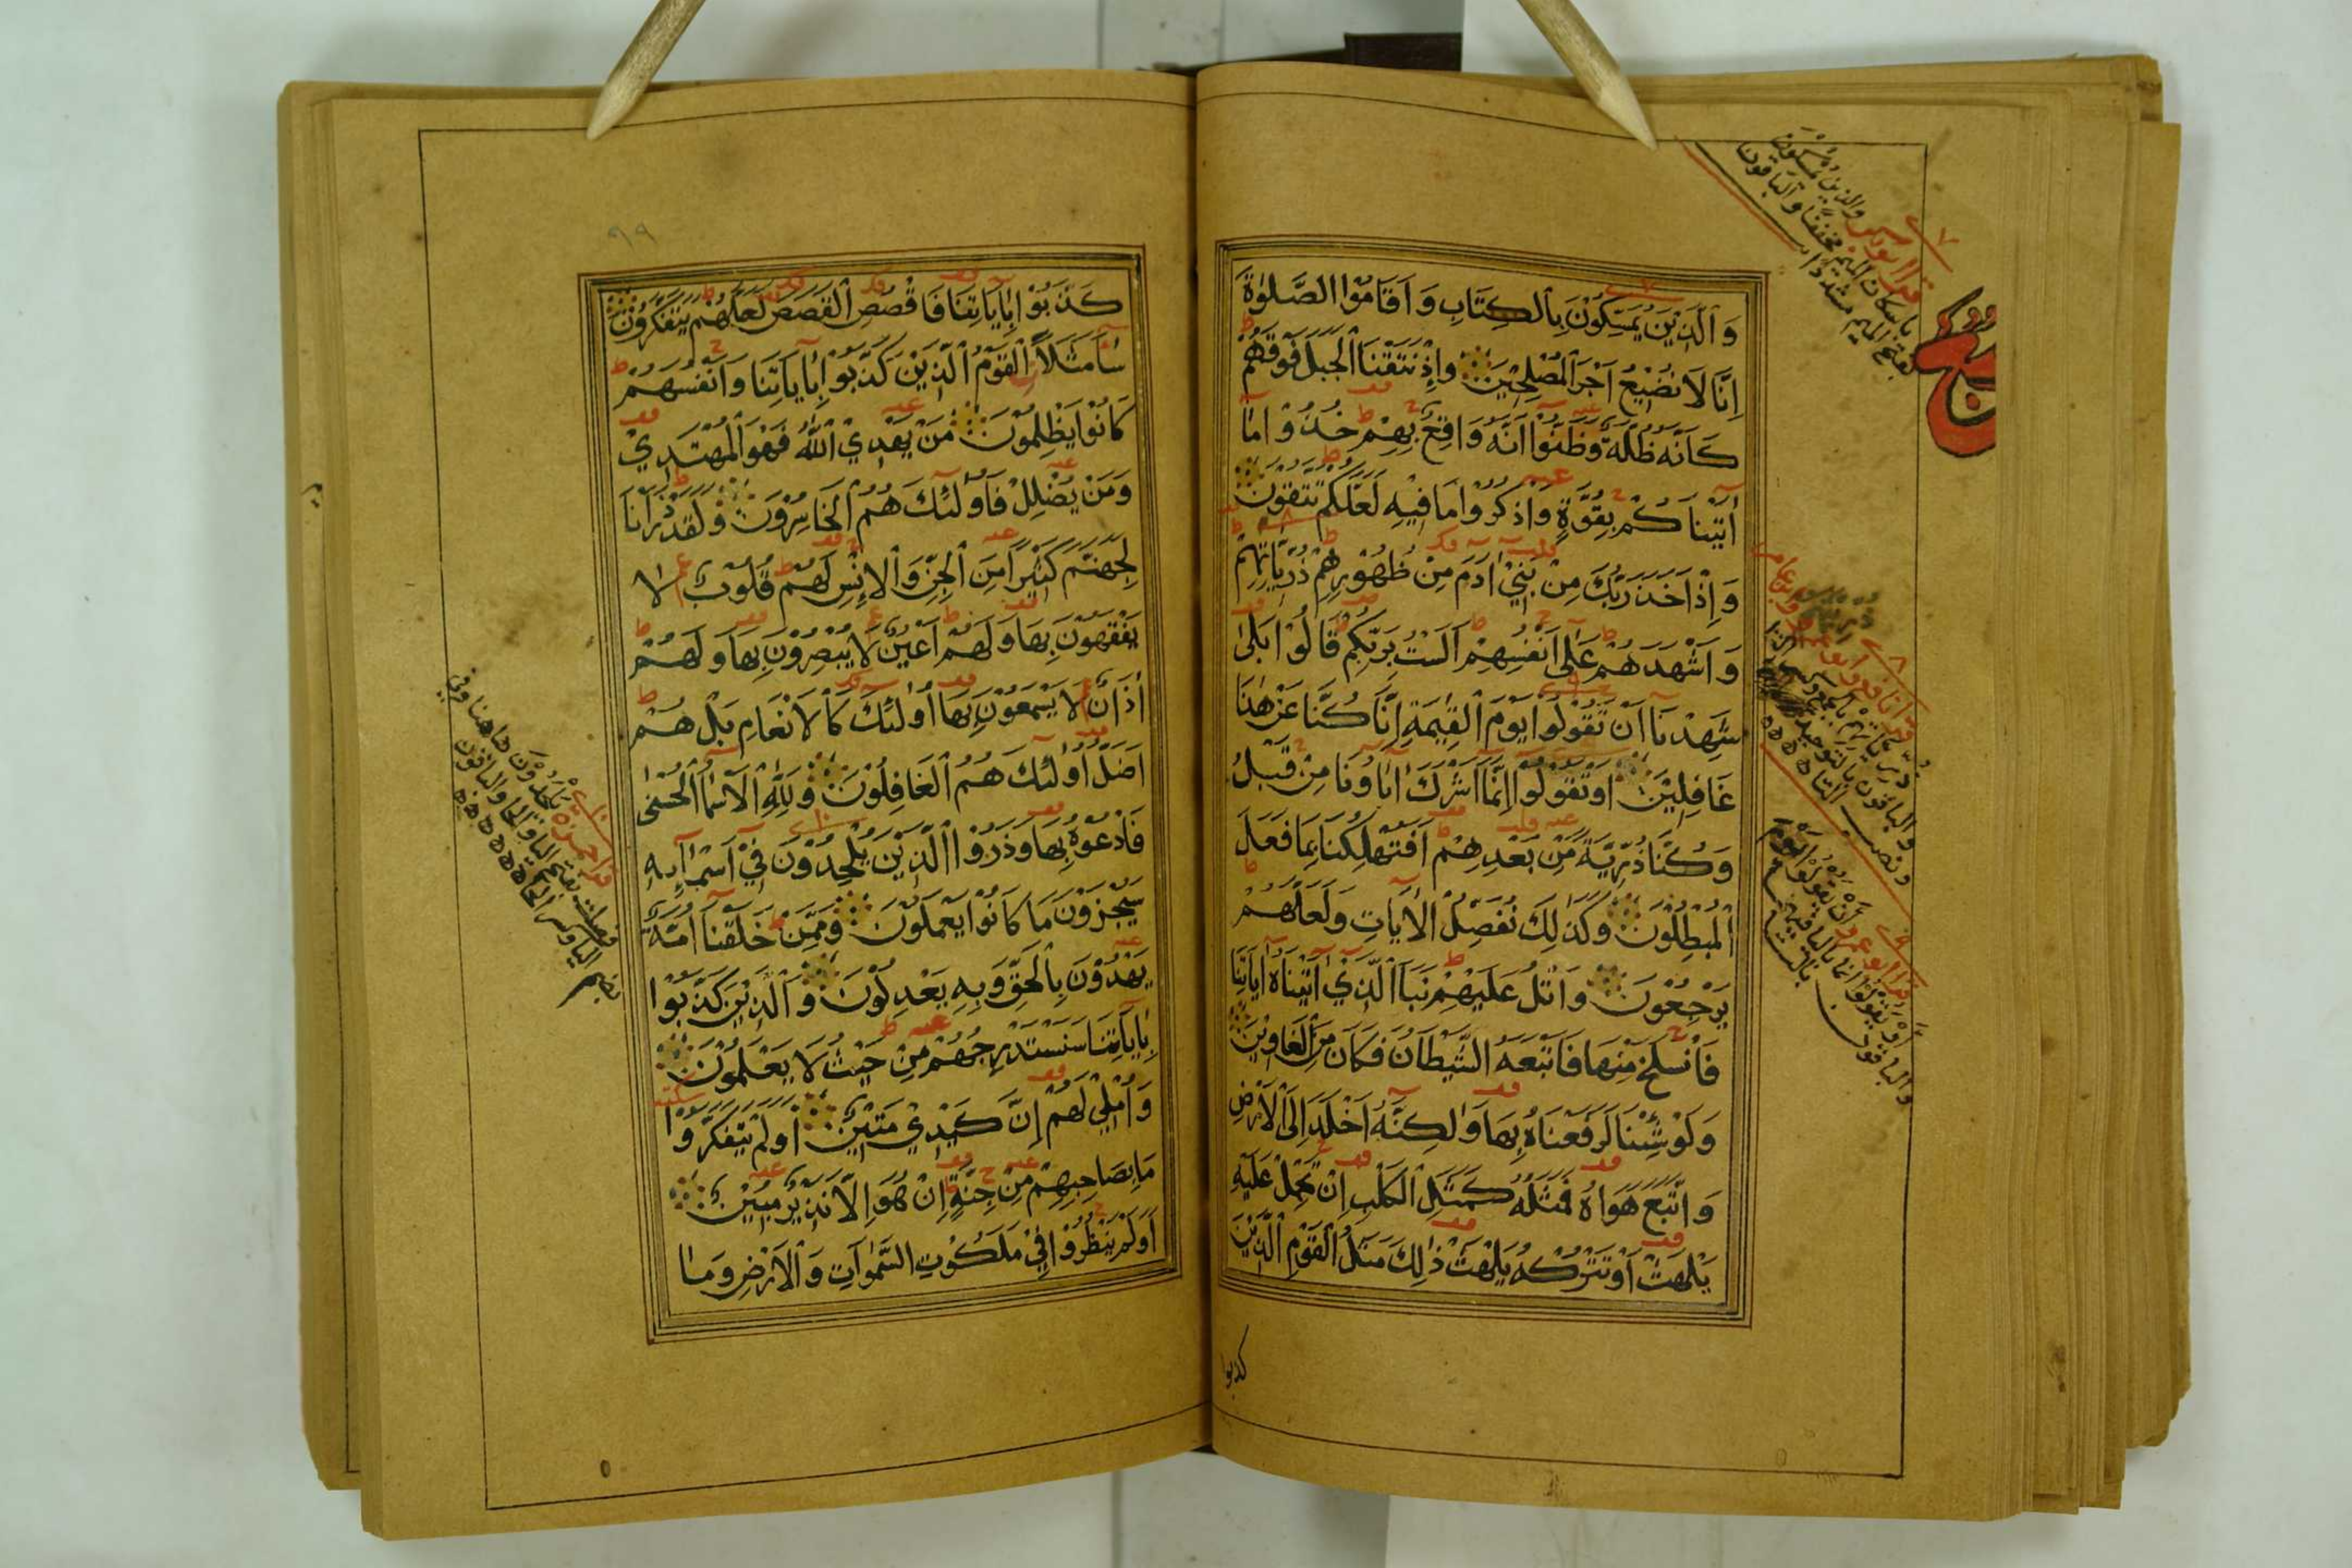 وَٱلَّذِيْنَ يُمَسِّكُوْنَ بِٱلْكِتَابِ وَاَقَامُوْا الصَّلٰوةَ
اِنَّا لَا نُضِيْعُ اَجْرَ ٱلْمُصْلِحِيْنَ وَاِذْ نَتَقْنَا ٱلْجَبَلَ فَوْقَهُمْ
كَاَنَّهُ ظُلَّةٌ وَظَنُّوْا اَنَّهُ وَاقِعٌ بِهِمْ خُذُوْا مَا
اٰتَيْنَاكُمْ بِقُوَّةٍ وَاذْكُرُوْا مَا فِيْهِ لَعَلَّكُمْ تَتَّقُوْنَ
وَاِذْ اَخَذَ رَبُّكَ مِنْ بَنِيْ اٰدَمَ مِنْ ظُهُوْرِهِمْ ذُرِّيَّاتِهِمْ
وَاَشْهَدَهُمْ عَلٰى اَنْفُسِهِمْ اَلَسْتُ بِرَبِّكُمْ قَالُوْا بَلٰى
شَهِدْنَا اَنْ تَقُوْلُوْا يَوْمَ ٱلْقِيٰمَةِ اِنَّا كُنَّا عَنْ هٰذَا
غَافِلِيْنَ اَوْ تَقُوْلُوْا اِنَّمَا اَشْرَكَ اٰبَاؤُنَا مِنْ قَبْلُ
وَكُنَّا ذُرِّيَّةً مِّنْ بَعْدِهِمْ اَفَتُهْلِكُنَا بِمَا فَعَلَ
ٱلْمُبْطِلُوْنَ وَكَذٰلِكَ نُفَصِّلُ الْاٰيَاتِ وَلَعَلَّهُمْ
يَرْجِعُوْنَ وَاتْلُ عَلَيْهِمْ نَبَاَ ٱلَّذِيْ اٰتَيْنَاهُ اٰيَاتِنَا
فَانْسَلَخَ مِنْهَا فَاَتْبَعَهُ الشَّيْطَانُ فَكَانَ مِنَ ٱلْغَاوِيْنَ
وَلَوْ شِئْنَا لَرَفَعْنَاهُ بِهَا وَلٰكِنَّهُ اَخْلَدَ اِلَى الْاَرْضِ
وَاتَّبَعَ هَوَاهُ فَمَثَلُهُ كَمَثَلِ ٱلْكَلْبِ اِنْ تَحْمِلْ عَلَيْهِ
يَلْهَثْ اَوْ تَتْرُكْهُ يَلْهَثْ ذٰلِكَ مَثَلُ ٱلْقَوْمِ ٱلَّذِيْنَ
كذبوا
٩٩
كَذَّبُوْا بِاٰيَاتِنَا فَاقْصُصِ ٱلْقَصَصَ لَعَلَّهُمْ يَتَفَكَّرُوْنَ
سَاۤءَ مَثَلًا ٱلْقَوْمُ ٱلَّذِيْنَ كَذَّبُوْا بِاٰيَاتِنَا وَاَنْفُسَهُمْ
كَانُوْا يَظْلِمُوْنَ مَنْ يَهْدِيْ ٱللّٰهُ فَهُوَ ٱلْمُهْتَدِيْ
وَمَنْ يُضْلِلْ فَاُولٰئِكَ هُمُ ٱلْخَاسِرُوْنَ وَلَقَدْ ذَرَاْنَا
لِجَهَنَّمَ كَثِيْرًا مِنَ ٱلْجِنِّ وَٱلْاِنْسِ لَهُمْ قُلُوْبٌ لَا
يَفْقَهُوْنَ بِهَا وَلَهُمْ اَعْيُنٌ لَا يُبْصِرُوْنَ بِهَا وَلَهُمْ
اٰذَانٌ لَا يَسْمَعُوْنَ بِهَا اُولٰئِكَ كَالْاَنْعَامِ بَلْ هُمْ
اَضَلُّ اُولٰئِكَ هُمُ ٱلْغَافِلُوْنَ وَلِلّٰهِ الْاَسْمَاۤءُ ٱلْحُسْنٰى
فَادْعُوْهُ بِهَا وَذَرُوْا ٱلَّذِيْنَ يُلْحِدُوْنَ فِيْ اَسْمَاۤئِهِ
سَيُجْزَوْنَ مَا كَانُوْا يَعْمَلُوْنَ وَمِمَّنْ خَلَقْنَا اُمَّةٌ
يَهْدُوْنَ بِٱلْحَقِّ وَبِهِ يَعْدِلُوْنَ وَٱلَّذِيْنَ كَذَّبُوْا
بِاٰيَاتِنَا سَنَسْتَدْرِجُهُمْ مِنْ حَيْثُ لَا يَعْلَمُوْنَ
وَاُمْلِيْ لَهُمْ اِنَّ كَيْدِيْ مَتِيْنٌ اَوَلَمْ يَتَفَكَّرُوْا
مَا بِصَاحِبِهِمْ مِنْ جِنَّةٍ اِنْ هُوَ اِلَّا نَذِيْرٌ مُبِيْنٌ
اَوَلَمْ يَنْظُرُوْا فِيْ مَلَكُوْتِ السَّمٰوَاتِ وَٱلْاَرْضِ وَمَا